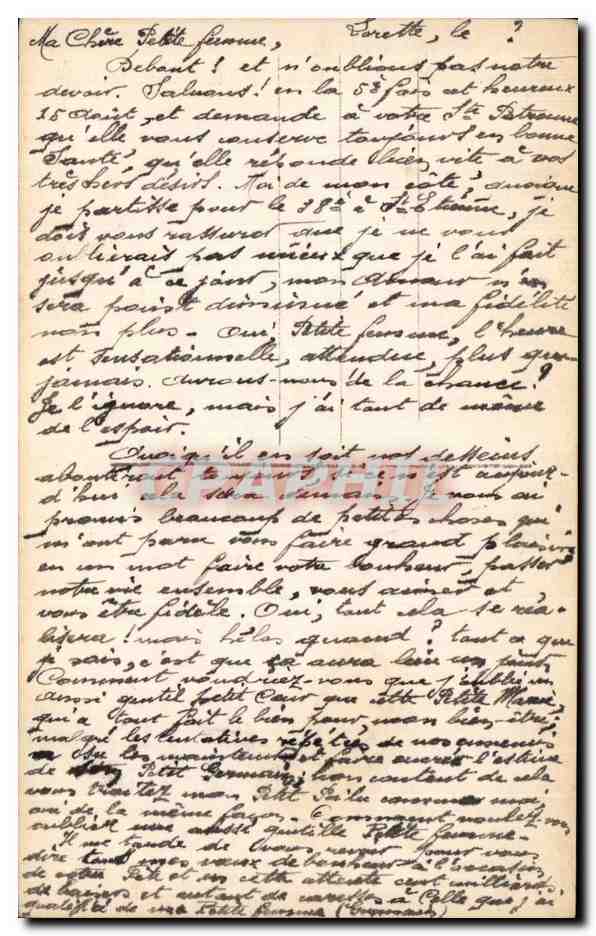 Ma Chère Petite femme, Lorette, le ?
Debout ! et n'oublions pas notre
devoir. Saluons ! en la 5e fois cet heureux
15 Août, et demande à votre Ste Patronne
qu'elle vous conserve toujours en bonne
Santé, qu'elle réponde bien vite à vos
très chers désirs. Moi de mon côté, quoique
je partisse pour le 38e à St Etienne, je
dois vous rassurer que je ne vous
oublierais pas mieux que je l'ai fait
jusqu'à ce jour, mon Amour n'en
sera point diminué et ma fidélité
non plus. Oui, Petite femme, l'heure
est sensationnelle, attendue, plus que
jamais. Aurons-nous de la chance ?
Je l'ignore, mais j'ai tout de même
de l'espoir.
Quoiqu'il en soit nos desseins
aboutiront, aujour-
d'hui demain. Je vous ai
promis beaucoup de petites choses qui
m'ont paru vous faire grand plaisir
en un mot faire votre bonheur, passer
notre vie ensemble, vous aimer et
vous être fidèle. Oui, tout cela se réa-
lisera ! mais hélas quand ? tout ce que
je sais, c'est que ça aura lieu un jour.
Comment voudriez-vous que j'oublie un
aussi gentil petit Cœur que cette Petite Marie,
qui a tout fait le bien pour, mon bien-être,
malgré les tentatives répétées de nos ennemis
a su les maintenir et faire l'estime
de son Petit Germain; non content de cela
vous traitez mon Petit Poilu comme moi,
de la même façon. Comment voulez-vous
oublier une aussi gentille Petite femme.
Il me tarde de vous revoir pour vous
dire tous mes vœux de bonheur à l'occasion
de votre Fête et en cette attente cent milliards
de baisers et autant de caresses à Celle que j'ai
qualifié de ma Petite femme (Germain)
CPAPHIL